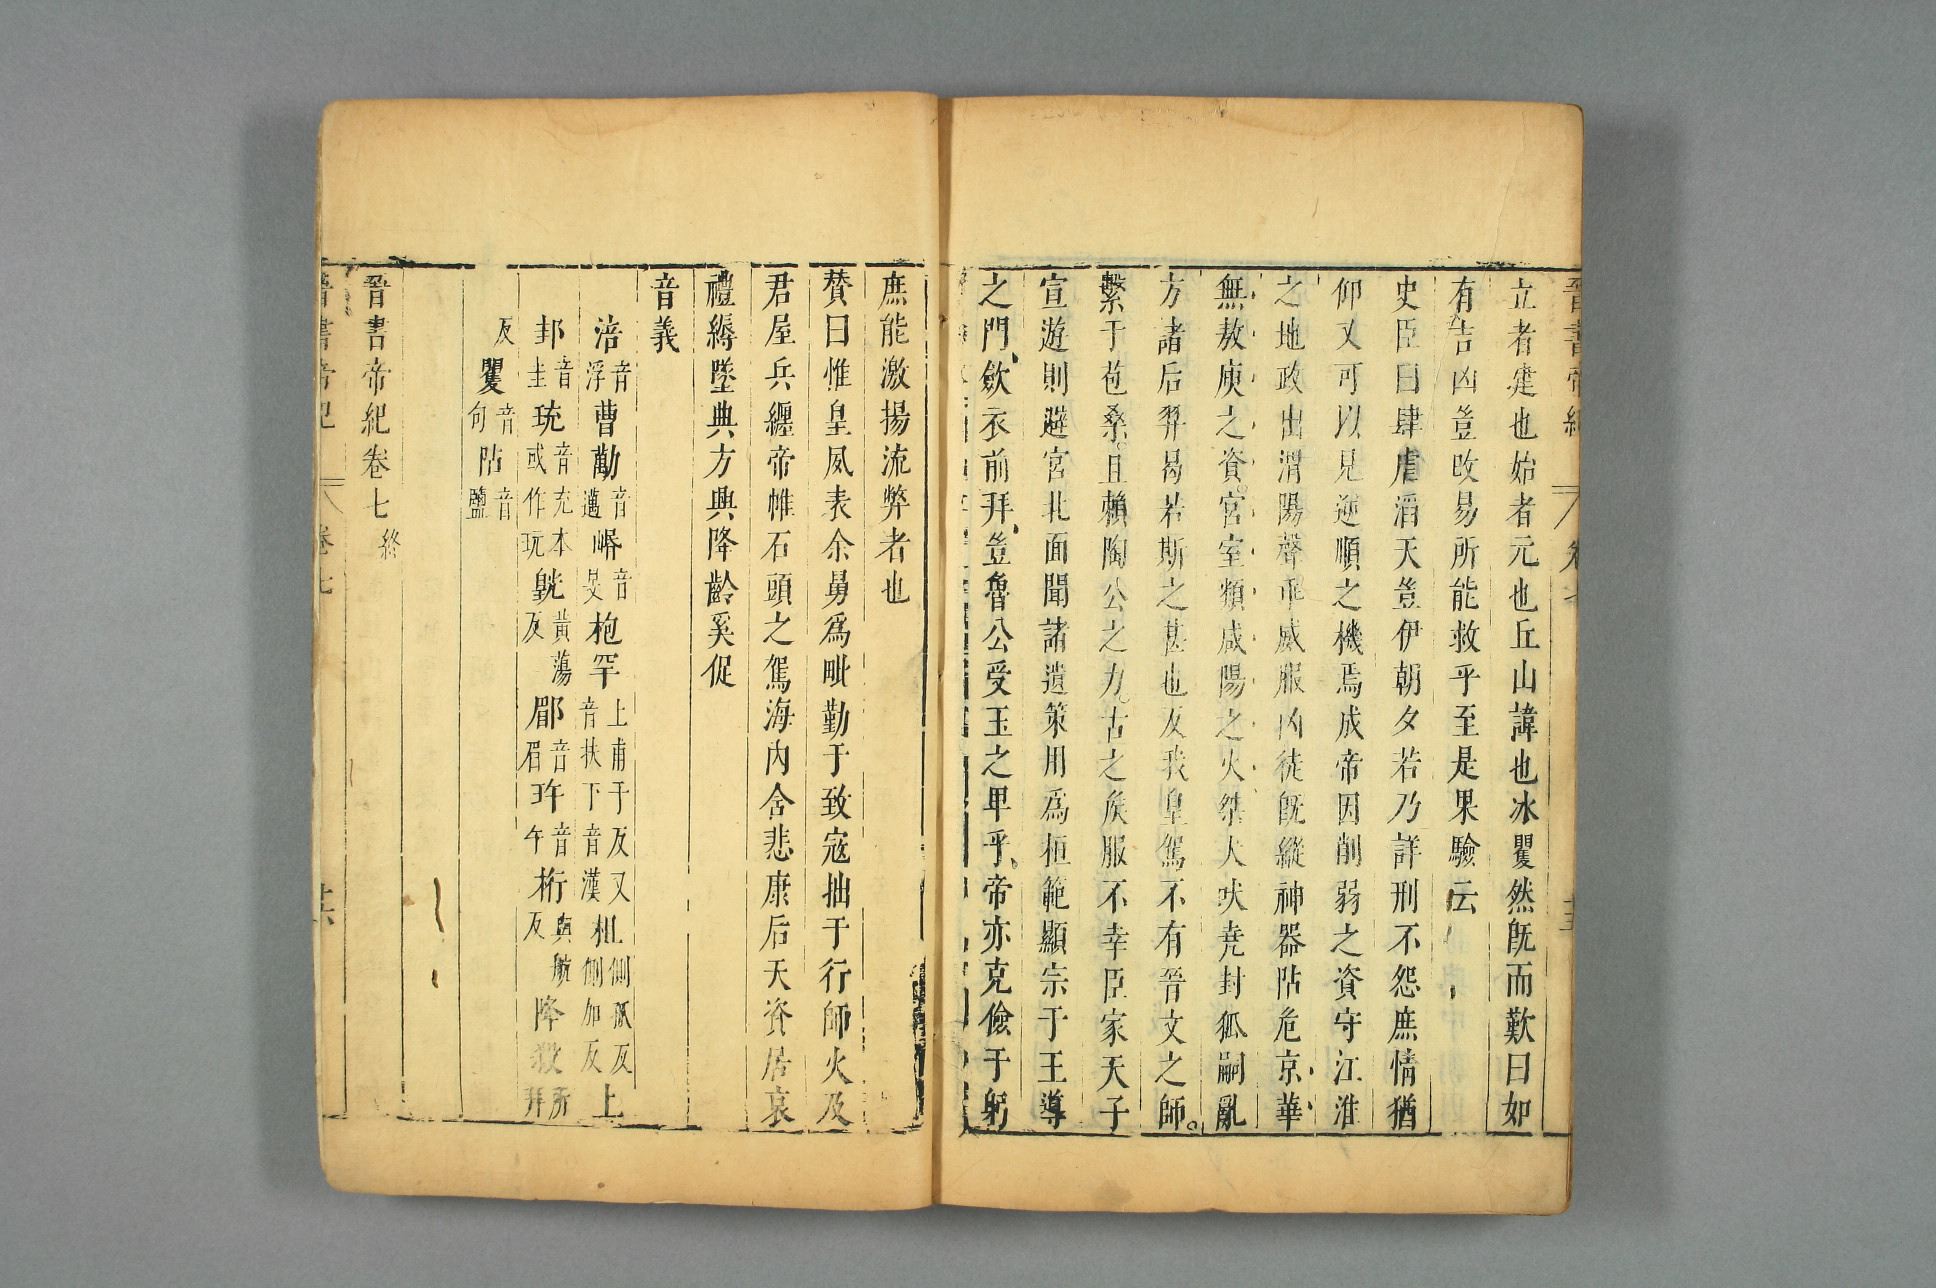 晉書帝紀 卷七 十五
立者建也始者元也丘山諱也冰瞿然旣而歎曰如
有吉凶豈改易所能救乎至是果驗云
史臣曰肆虐滔天豈伊朝夕若乃詳刑不怨庶情猶
仰又可以見逆順之機焉成帝因削弱之資守江淮
之地政出渭陽聲乖威服凶徒旣縱神器阽危京華
無敖庾之資宮室類咸陽之火桀犬吠堯封狐嗣亂
方諸后羿曷若斯之甚也反我皇駕不有晉文之師
繫于苞桑且賴陶公之力古之侯服不幸臣家天子
宣遊則避宮北面聞諸遺策用爲恒範顯宗于王導
之門斂衣前拜豈魯公受玉之卑乎帝亦克儉于躬
庶能激揚流弊者也
贊曰惟皇夙表余舅爲毗勤于致寇拙于行師火及
君屋兵纏帝帷石頭之駕海內含悲康后天資居哀
禮縟墜典方興降齡奚促
音義
涪音浮曹勱音邁㟭音旻枹罕上甫于反又音扶下音漢柤側孤反側加反上
邽音圭珫音充本或作玩晃黃蕩反郿音眉玝音午桁與航反降殺所拜
反瞿音句阽音鹽
晉書帝紀卷七終
晉書帝紀 卷七 十六